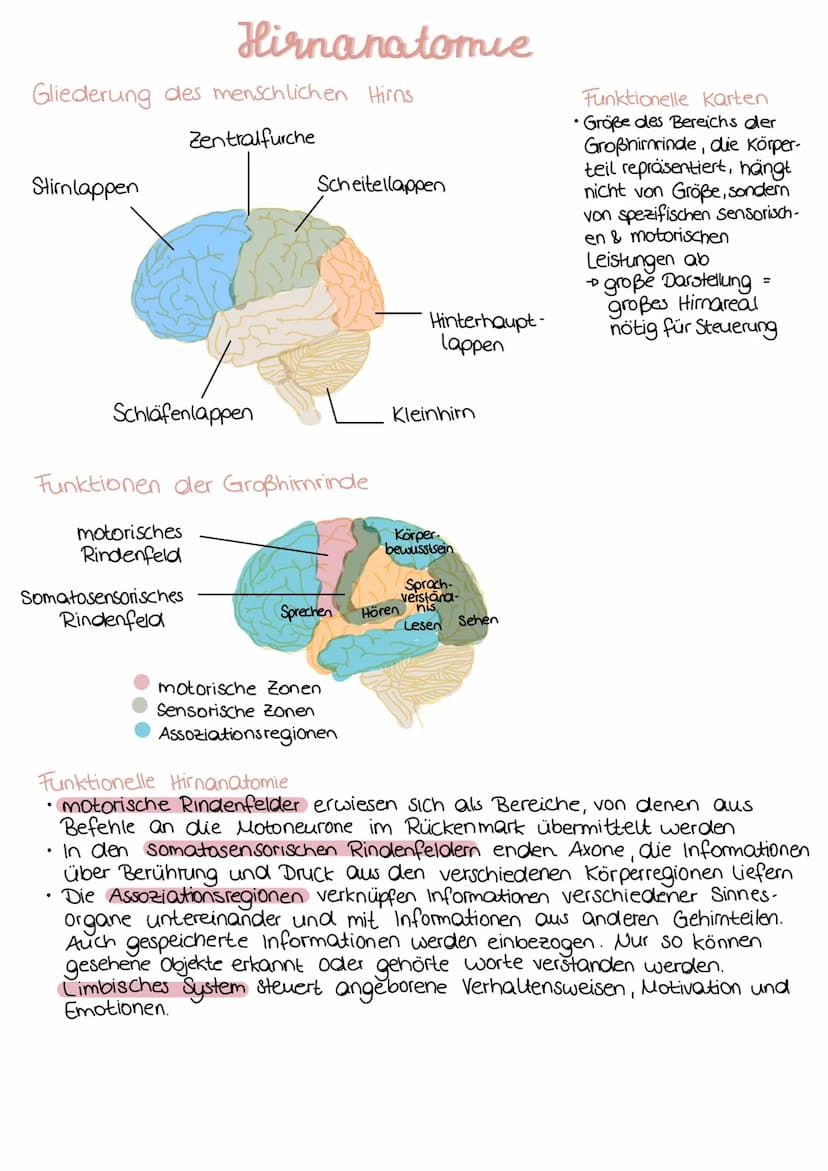 Hirnanatomie
Gliederung des menschlichen Hirns
Zentralfurche
Stirnlappen
Scheitellappen
Hinterhaupt-
lappen
Schläfenlappen
Kleinhirn
Funktionelle Karten
• Größe des Bereichs der
Großhirnrinde, die Körper-
teil repräsentiert, hängt
nicht von Größe, sondern
von spezifischen sensorisch-
en & motorischen
Leistungen ab
→ große Darstellung =
großes Hirnareal
nötig für Steuerung
Funktionen der Großhirnrinde
motorisches
Rindenfeld
Somatosensorisches
Rindenfeld
Körper-
bewusstsein
Sprach-
verständ-
nis
Sprechen
Hören
Lesen
Sehen
motorische Zonen
Sensorische Zonen
Assoziationsregionen
Funktionelle Hirnanatomie
• motorische Rindenfelder erwiesen sich als Bereiche, von denen aus
Befehle an die Motoneurone im Rückenmark übermittelt werden
• In den somatosensorischen Rindenfeldern enden Axone, die Informationen
über Berührung und Druck aus den verschiedenen Körperregionen liefern
• Die Assoziationsregionen verknüpfen Informationen verschiedener Sinnes-
organe untereinander und mit Informationen aus anderen Gehirnteilen.
Auch gespeicherte Informationen werden einbezogen. Nur so können
gesehene Objekte erkannt oder gehörte Worte verstanden werden.
Limbisches System steuert angeborene Verhaltensweisen, Motivation und
Emotionen.